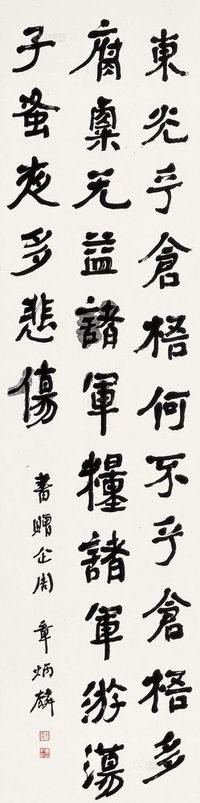 東光乎倉梧何不乎倉梧多
腐粟无益諸軍糧諸軍游蕩
子蚤夜多悲傷
書贈企周 章炳麟